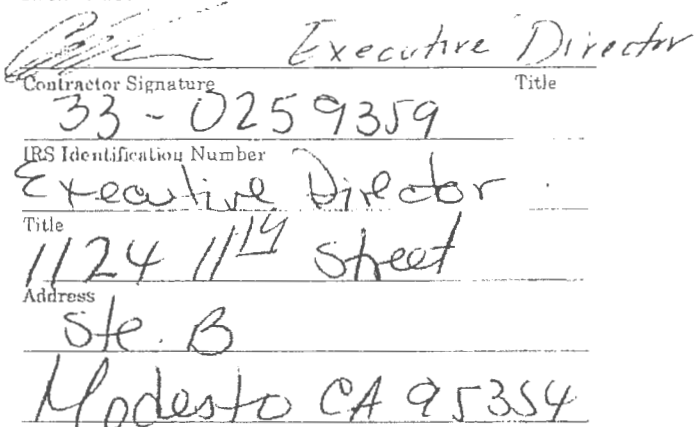 Executive Director
Contractor Signature Title
33-0259359
IRS Identification Number
Executive Director
Title
1124 11th Street
Address
Ste. B
Modesto CA 95354